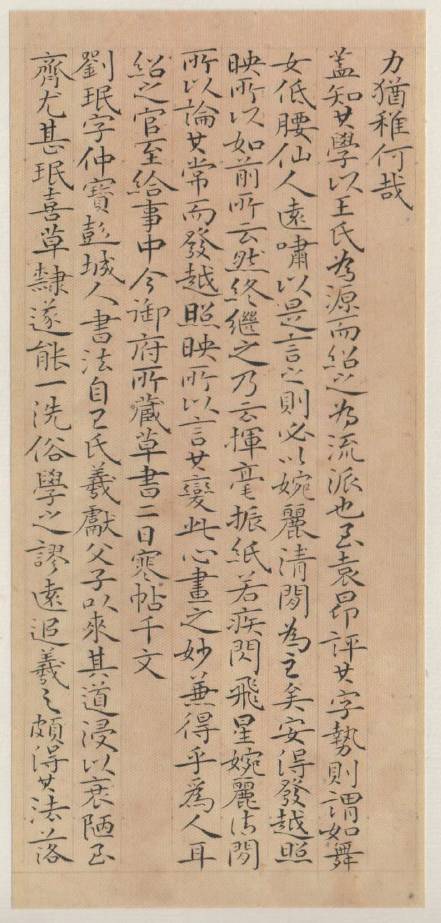 力猶稚何哉
蓋知其學以王氏為源而紹之為流派也至袁昂評其字勢則謂如舞
女低腰仙人遠嘯以是言之則必以婉麗清閑為主矣安得發越照
映所以如前所云然終繼之乃云揮毫振紙若疾閃飛星婉麗清閑
所以論其常而發越照映所以言其變此心畫之妙兼得乎為人耳
紹之官至給事中今御府所藏草書二日寒帖千文
劉珉字仲寶彭城人書法自王氏羲獻父子以來其道浸以衰陋至
齊尤甚珉喜草隸遂能一洗俗學之謬遠追羲之頗得其法落